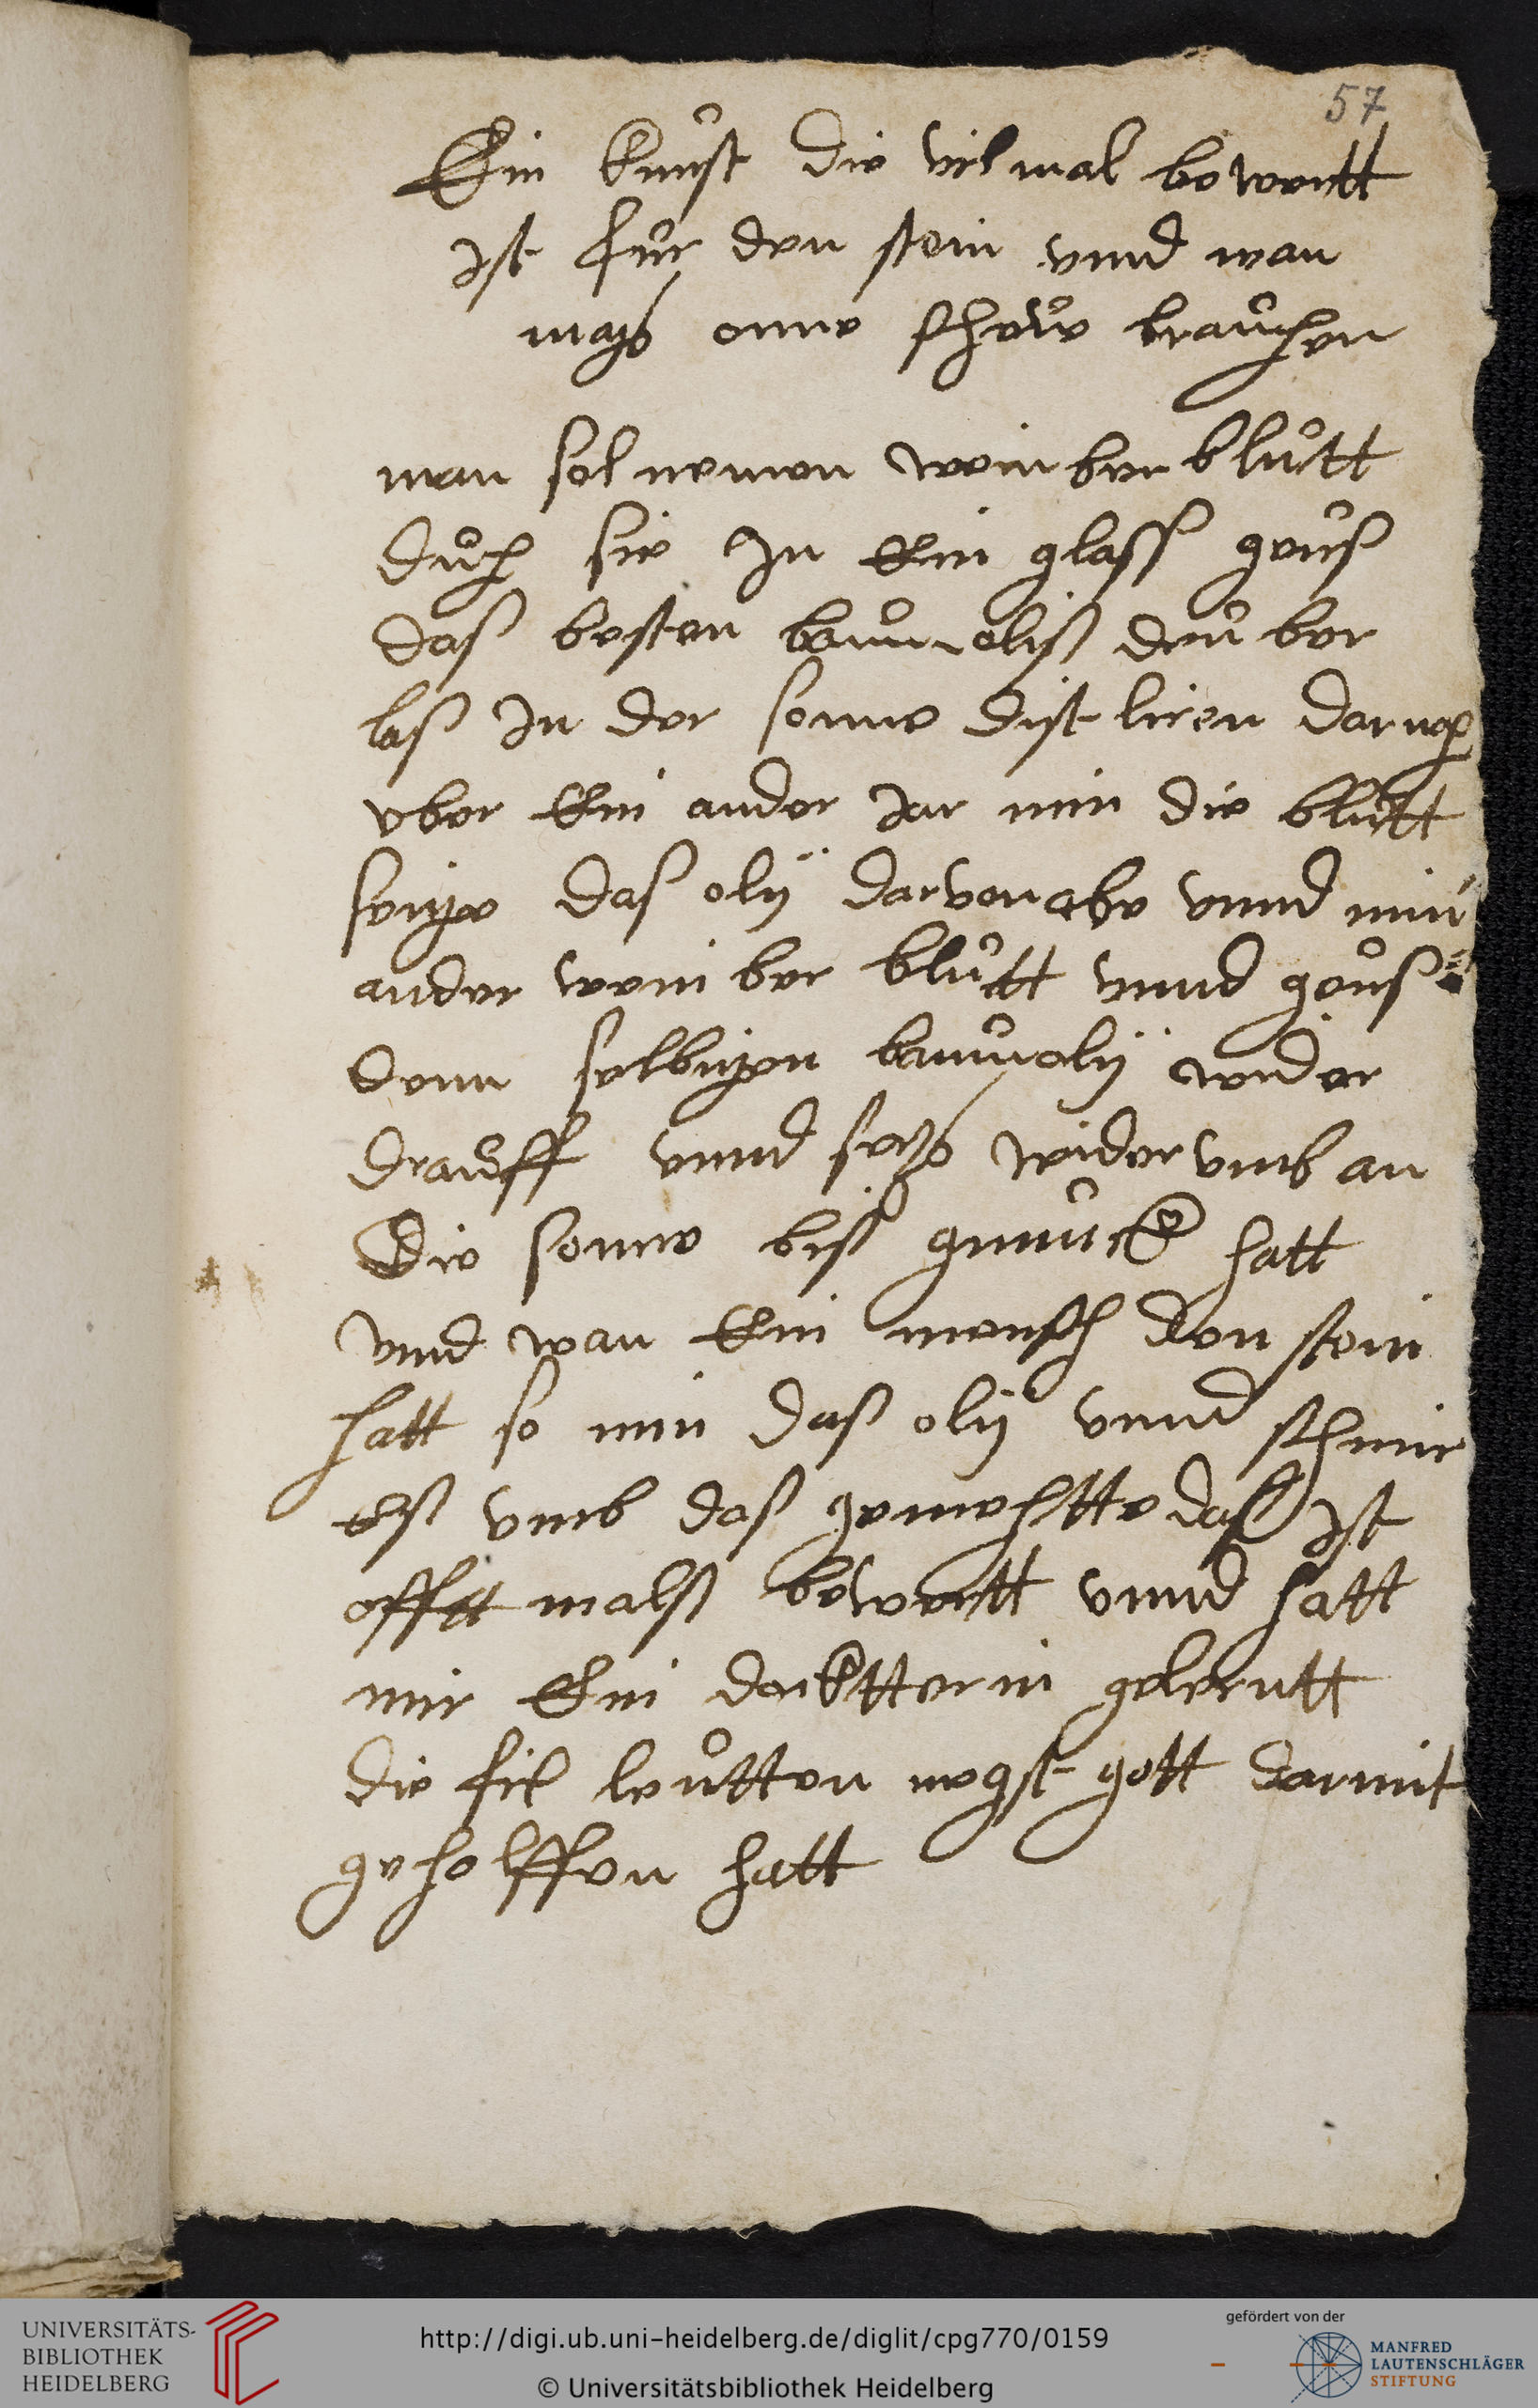 57
Ein kunst die vil mal bewertt
ist fur den stein vnnd man
mags onne schewe brauchen
man sol nemen wein ber blutt
duch sie In Ein glass geus
das besten baum oliß dru ber
las In der sonne dist liren dar nach
vber Ein ander Jar nim die blutt
seige das olÿ dar von abe vnnd nim
ander wein ber blutt vnnd geus
denn selbigen baumolÿ wider
drauff vnnd setzs wider vmb an
die sonne biß gnunck hatt
vnnd wan Ein mensch den stein
hatt so nim das olÿ vnnd schmir
Es vmb das gemechtte das ist
offtt mals bewertt vnnd hatt
mir Ein docktterin gelerntt
die fil leutten negst gott darmit
geholffen hatt
UNIVERSITÄTS-
BIBLIOTHEK
HEIDELBERG
http://digi.ub.uni-heidelberg.de/diglit/cpg770/0159
© Universitätsbibliothek Heidelberg
gefördert von der
MANFRED
LAUTENSCHLÄGER
STIFTUNG